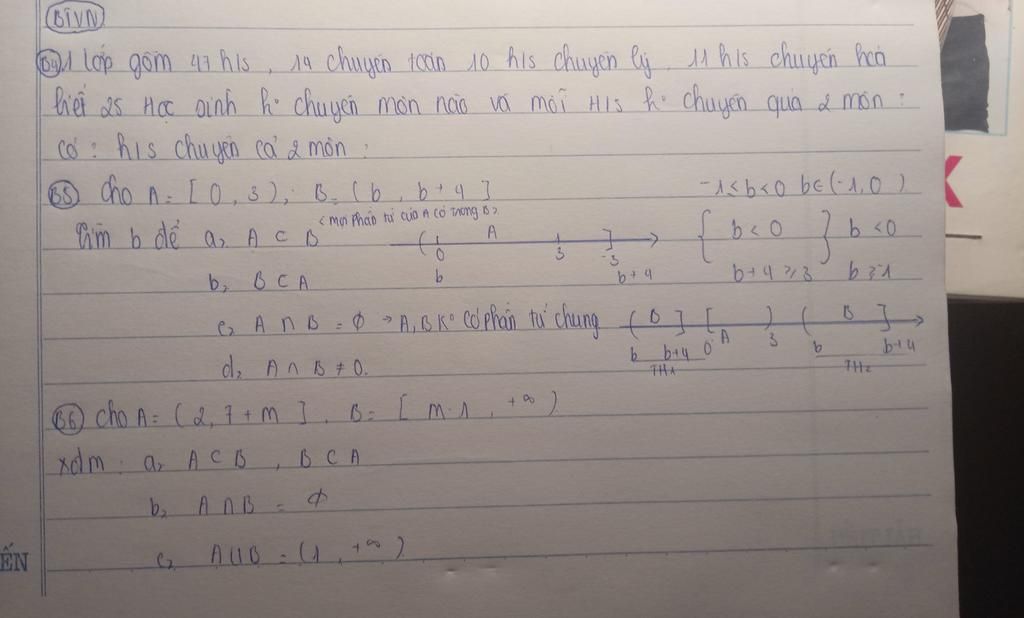 BTVN
B4) 1 lớp gồm 47 h/s, 14 chuyên toán 10 h/s chuyên lý, 11 h/s chuyên hoá
biết 25 Học sinh k° chuyên môn nào và mỗi H/s k° chuyên quá 2 môn:
có: h/s chuyên cả 2 môn:
B5) Cho A = [0, 3); B = (b, b+4] -1 < b < 0 b ∈ (-1, 0)
<mọi phần tử của A có trong B>
Tìm b để a, A ⊂ B ( A ] { b < 0 } b < 0
0 3 3
b b+4 b+4 ⩾ 3 b ⩾ -1
b, B ⊂ A
c, A ∩ B = ∅ → A, B K° có phần tử chung ( B ] [ ) ( B ]
b b+4 0 A 3 b b+4
TH1 TH2
d, A ∩ B ≠ 0.
B6) Cho A = (2, 7+m], B = [m-1, +∞)
xđm: a, A ⊂ B, B ⊂ A
b, A ∩ B = ∅
c, A ∪ B = (1, +∞)
ẾN